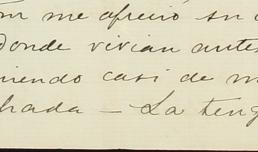 me ofreció su
donde vivian antes
niendo casi de m
hada — La teng